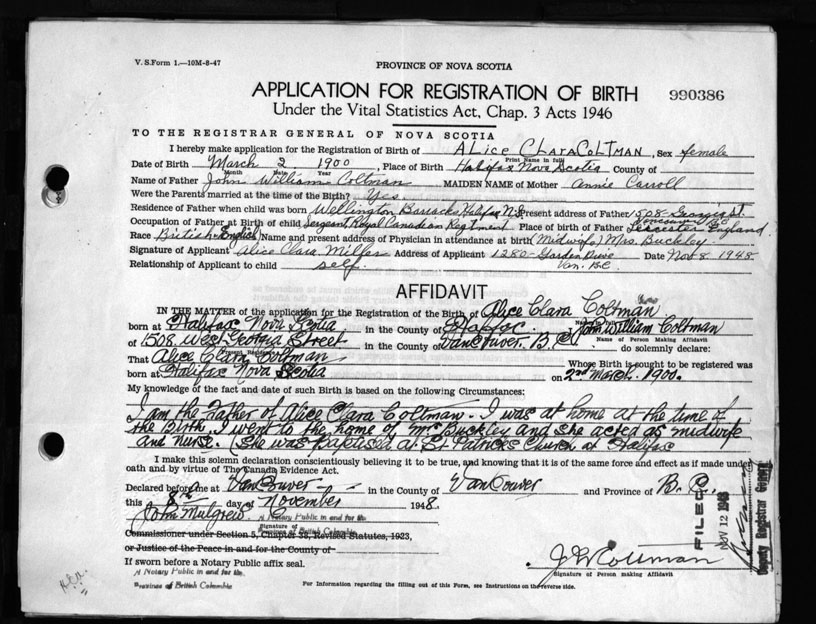 V. S. Form 1.—10M-8-47
PROVINCE OF NOVA SCOTIA
APPLICATION FOR REGISTRATION OF BIRTH
990386
Under the Vital Statistics Act, Chap. 3 Acts 1946
TO THE REGISTRAR GENERAL OF NOVA SCOTIA
I hereby make application for the Registration of Birth of ALice CLara COLTMAN, Sex female
Print Name in full
Date of Birth March 2 1900, Place of Birth Halifax Nova Scotia County of
Month Date Year
Name of Father John William Coltman MAIDEN NAME of Mother Annie Carroll
Were the Parents married at time of the Birth? Yes
Residence of Father when child was born Wellington Barracks Halifax N.S. Present address of Father 1508-Georgia St. Vancouver BC
Occupation of Father at Birth of child Sergeant Royal Canadian Regtment Place of birth of Father Leicester England
Race British English Name and present address of Physician in attendance at birth (Midwife) Mrs. Buckley
Signature of Applicant Alice Clara Address of Applicant 1280-Garden Drive Van. B.C Date Nov 8 1948
Relationship of Applicant to child self.
AFFIDAVIT
IN THE MATTER of the application for the Registration of the Birth of Alice Clara Coltman
Name in full
born at Halifax Nova Scotia in the County of John William Coltman
Name of Person Making Affidavit
of 1508 West Georgia Street in the County of Vancouver. B.C. do solemnly declare:
Present
That Alice Clara Coltman Whose Birth is sought to be registered was
born at Halifax Nova Scotia on 2nd March. 1900.
My knowledge of the fact and date of such Birth is based on the following Circumstances:
I am the Father of Alice Clara Coltman. I was at home at the time of
the Birth. I went to the home of Mrs Buckley and she acted as midwife
and nurse. (She was Baptised at St Patricks Church at Halifax
I make this solemn declaration conscientiously believing it to be true, and knowing that it is of the same force and effect as if made under
oath and by virtue of The Canada Evidence Act.
Declared before me at Vancouver in the County of Vancouver and Province of B. C.
this 8th day of November 1948.
John Mulgrew
A Notary Public in and for the
Signature of
Province of British Columbia
Commissioner under Section 5, Chapter 38, Revised Statutes, 1923,
or Justice of the Peace in and for the County of
If sworn before a Notary Public affix seal.
A Notary Public in and for the
Province of British Columbia
J W Coltman
Signature of Person making Affidavit
For Information regarding the filling out of this Form, see Instructions on the reverse side.
FILED
NOV 12 1948
Deputy Registrar General